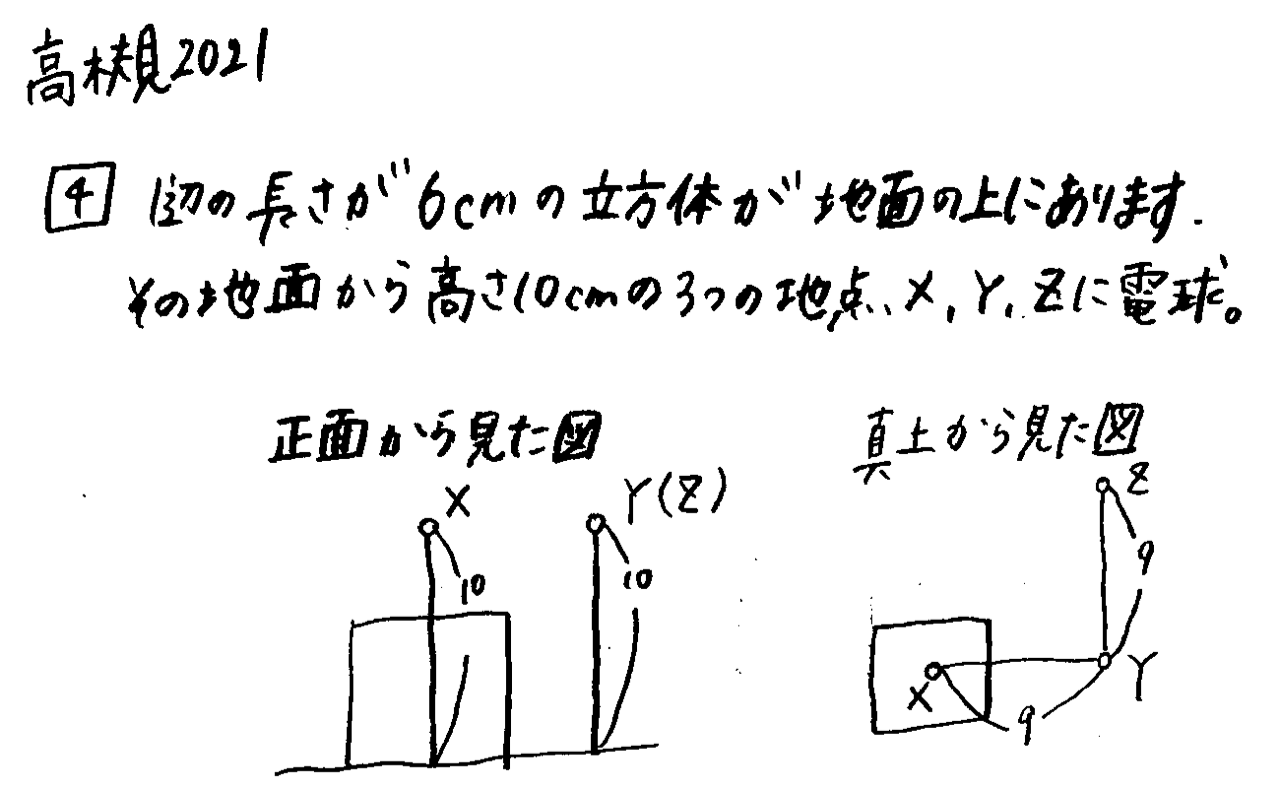 高槻2021
4 1辺の長さが6cmの立方体が地面の上にあります.
その地面から高さ10cmの3つの地点、X, Y, Zに電球。
正面から見た図
真上から見た図
X
Y(Z)
10
10
Z
9
X
Y
9